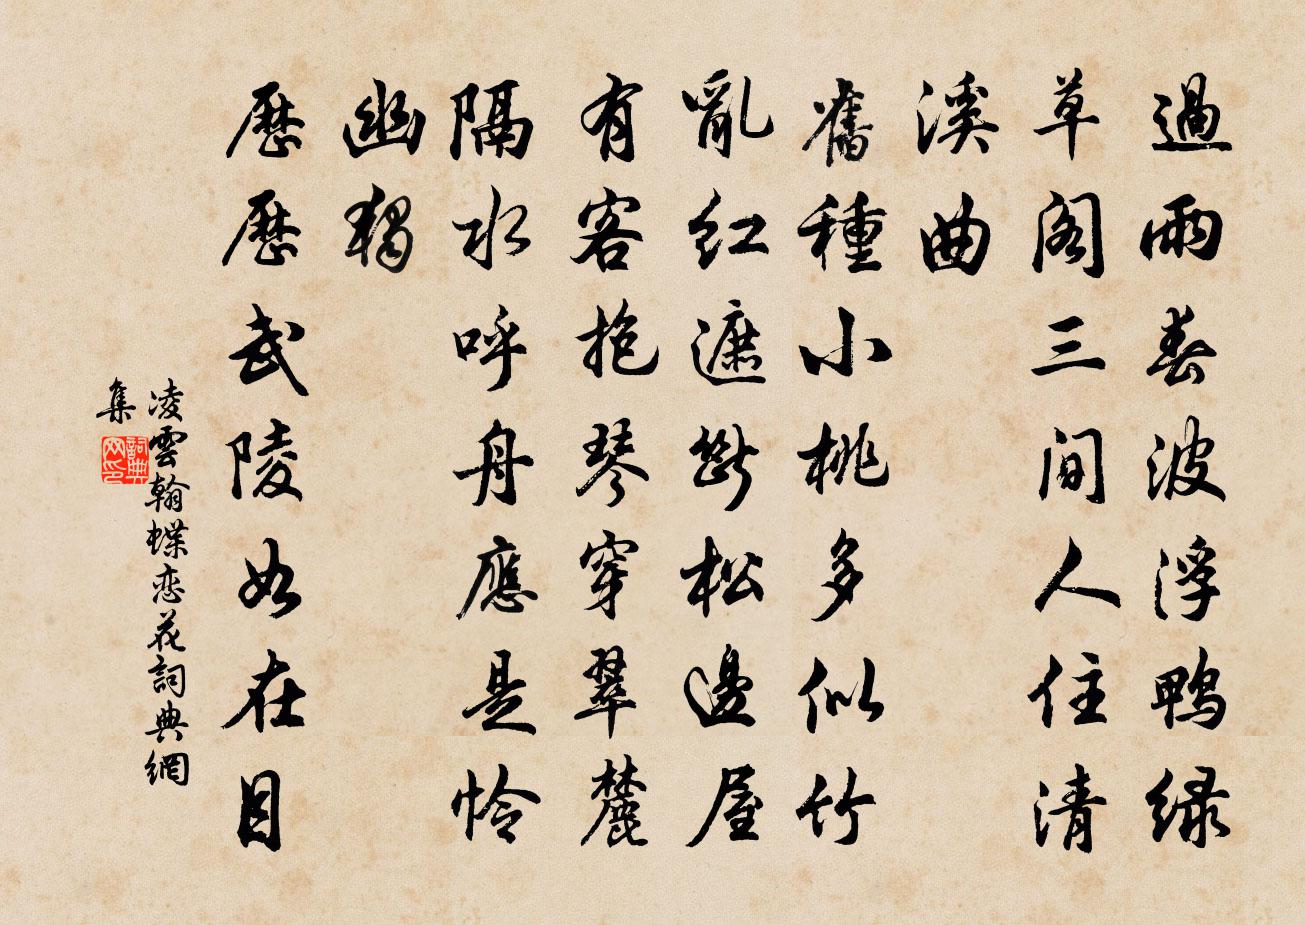 過雨春波浮鴨綠
草阁三间人住清
溪曲
舊種小桃多似竹
亂紅遮斷松邊屋
有客抱琴穿翠麓
隔水呼舟應是怜
幽獨
歷歷武陵如在目
凌雲翰蝶恋花詞典網
集
詞典網印